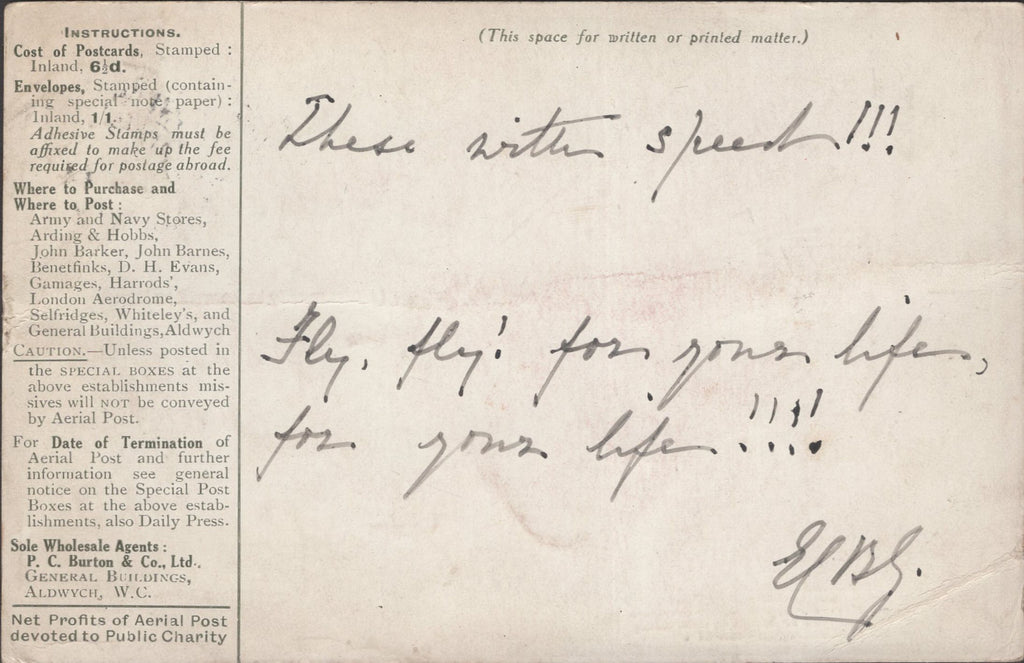 INSTRUCTIONS.
Cost of Postcards, Stamped :
Inland, 6½d.
Envelopes, Stamped (contain-
ing special note paper) :
Inland, 1/1.
Adhesive Stamps must be
affixed to make up the fee
required for postage abroad.
Where to Purchase and
Where to Post :
Army and Navy Stores,
Arding & Hobbs,
John Barker, John Barnes,
Benetfinks, D. H. Evans,
Gamages, Harrods',
London Aerodrome,
Selfridges, Whiteley's, and
General Buildings, Aldwych
CAUTION.—Unless posted in
the SPECIAL BOXES at the
above establishments mis-
sives will NOT be conveyed
by Aerial Post.
For Date of Termination of
Aerial Post and further
information see general
notice on the Special Post
Boxes at the above estab-
lishments, also Daily Press.
Sole Wholesale Agents :
P. C. Burton & Co., Ltd.,
GENERAL BUILDINGS,
ALDWYCH, W.C.
Net Profits of Aerial Post
devoted to Public Charity
(This space for written or printed matter.)
These with speed!!!
Fly, fly! for your life,
for your life!!!!